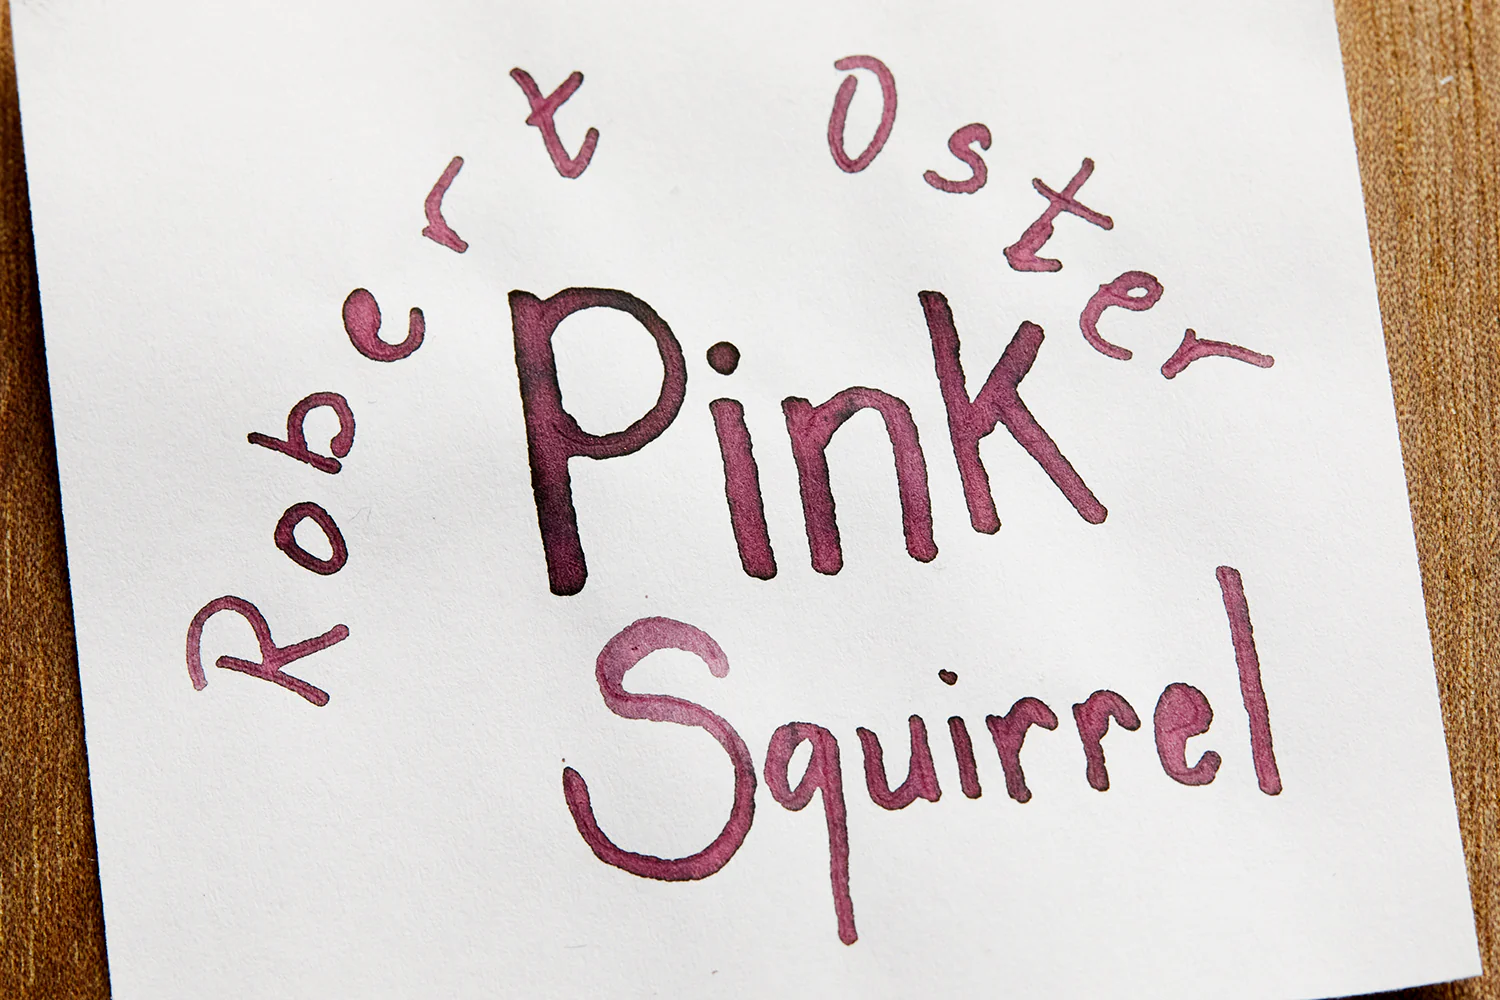 Robert Oster
Pink
Squirrel